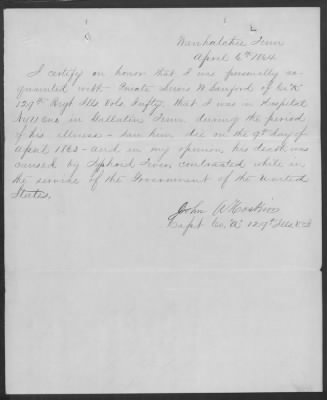 Wauhatchie Tenn
April 6th 1864.
I certify on honor that I was personally ac-
quainted with Private W. Sanford of Co "A"
129th Regt Ills Vols. Infty. that I was in Hospital
No. One in Gallatin Tenn. during the period
of his illness - saw him die on the 9th day of
April 1863 - and in my opinion his death was
caused by Typhoid Fever, contracted while in
the service of the Government of the United
States.
John W Hoskins
Capt Co. "A" 129th Ills